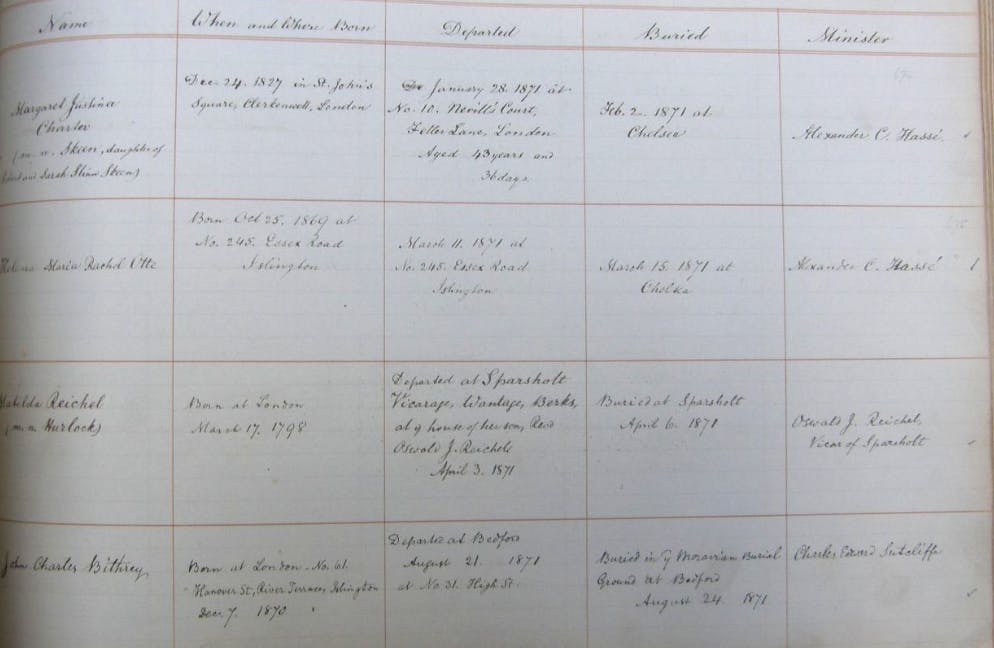 Name
When and Where Born
Departed
Buried
Minister
Margaret Justina
Charter
(m. n. Skeen, daughter of
and Sarah Skeen)
Dec. 24. 1827 in St. John's
Square, Clerkenwell, London
January 28. 1871 at
No. 10. Nevill's Court,
Fetter Lane, London
Aged 43 years and
36 days
Feb. 2. 1871 at
Chelsea
Alexander C. Hassé.
Helena Maria Rachel Otte
Born Oct 25. 1869 at
No. 245. Essex Road
Islington
March 11. 1871 at
No. 245. Essex Road
Islington
March 15. 1871 at
Chelsea
Alexander C. Hassé
Matilda Reichel
(m. n. Hurlock)
Born at London
March 17. 1798
Departed at Sparsholt
Vicarage, Wantage, Berks,
at y house of her son, Revd
Oswald J. Reichel
April 3. 1871
Buried at Sparsholt
April 6. 1871
Oswald J. Reichel,
Vicar of Sparsholt
John Charles Bithrey
Born at London. No. 61.
Hanover St, River Terrace, Islington
Dec. 7. 1870
Departed at Bedford
August 21. 1871
at No. 31. High St.
Buried in y Moravian Burial
Ground at Bedford
August 24. 1871
Charles Edward Sutcliffe